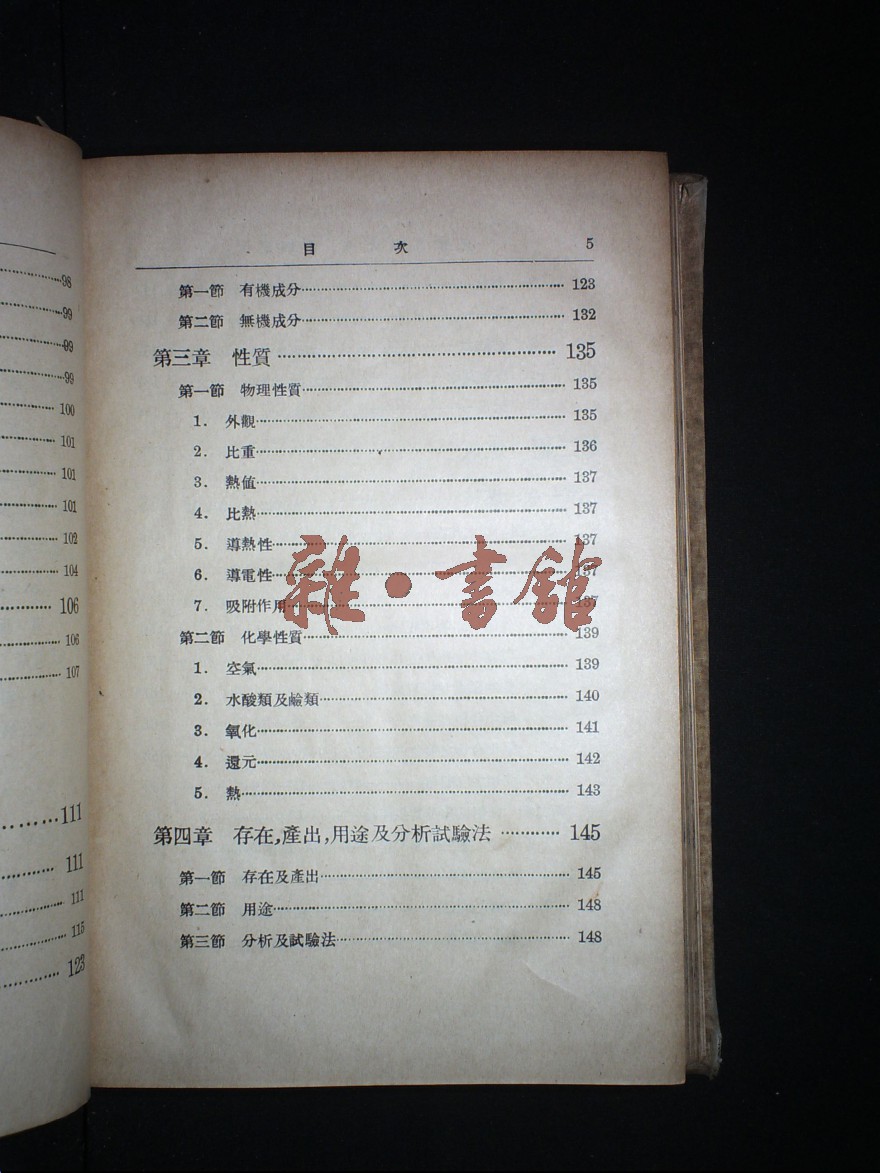 98
99
99
99
100
101
101
101
102
104
106
106
107
111
111
111
115
123
目 次 5
第一節 有機成分 123
第二節 無機成分 132
第三章 性質 135
第一節 物理性質 135
1. 外觀 135
2. 比重 136
3. 熱値 137
4. 比熱 137
5. 導熱性 137
6. 導電性 137
7. 吸附作用 137
雜·書館
第二節 化學性質 139
1. 空氣 139
2. 水酸類及鹼類 140
3. 氧化 141
4. 還元 142
5. 熱 143
第四章 存在,產出,用途及分析試驗法 145
第一節 存在及產出 145
第二節 用途 148
第三節 分析及試驗法 148